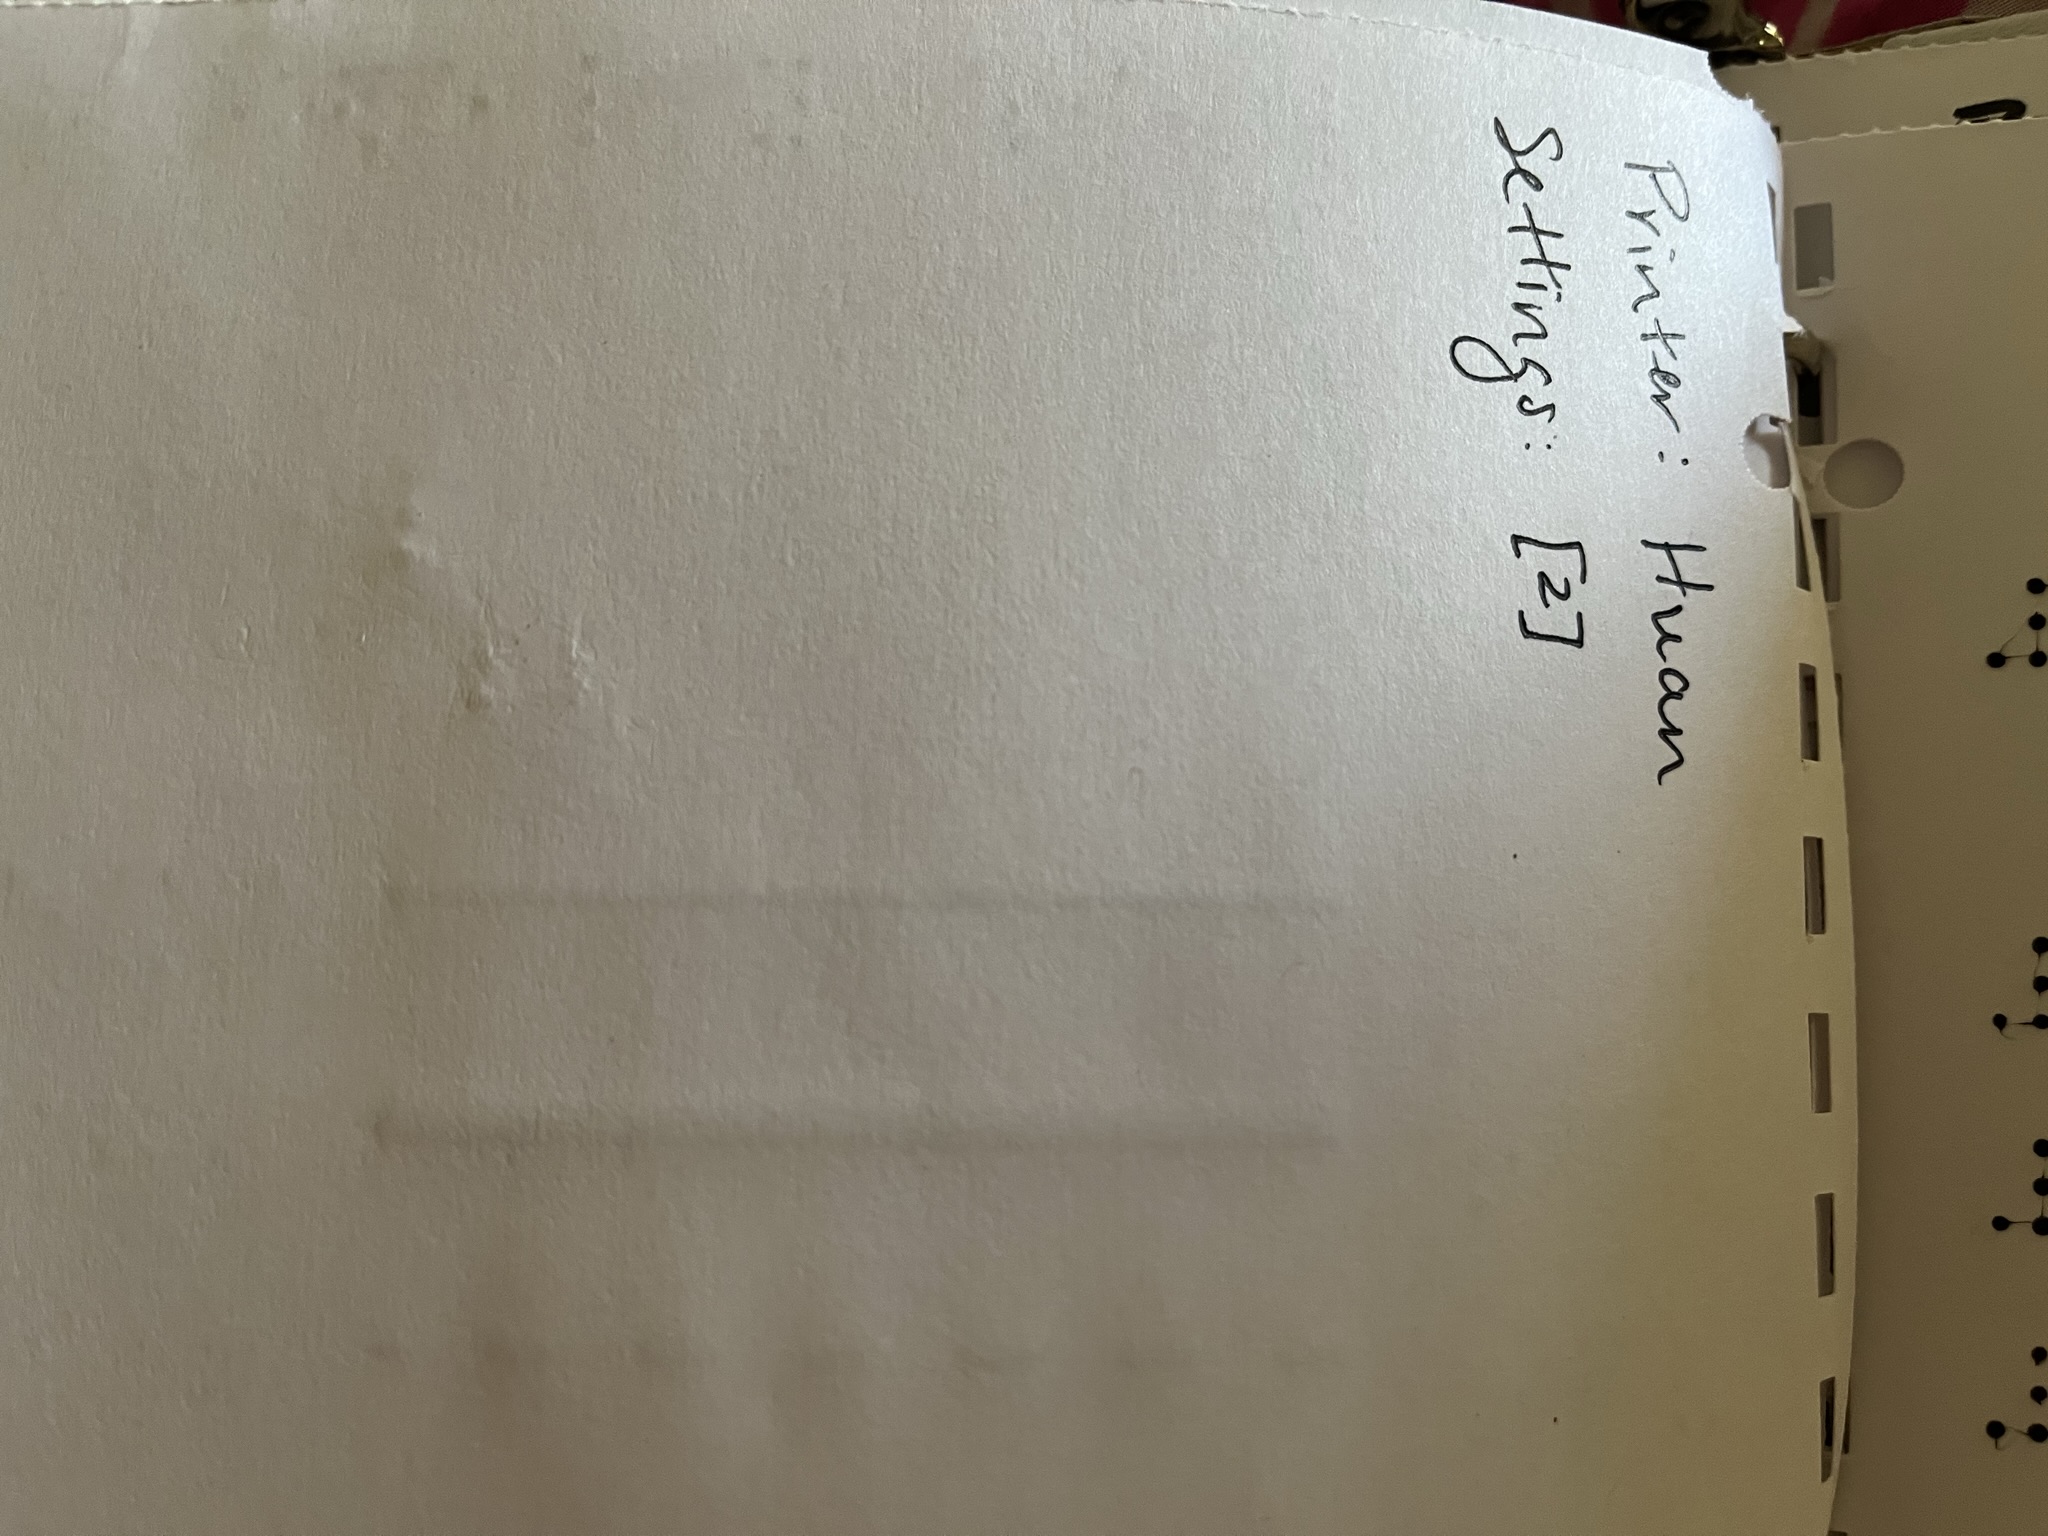 Printer: Human
Settings: [2]